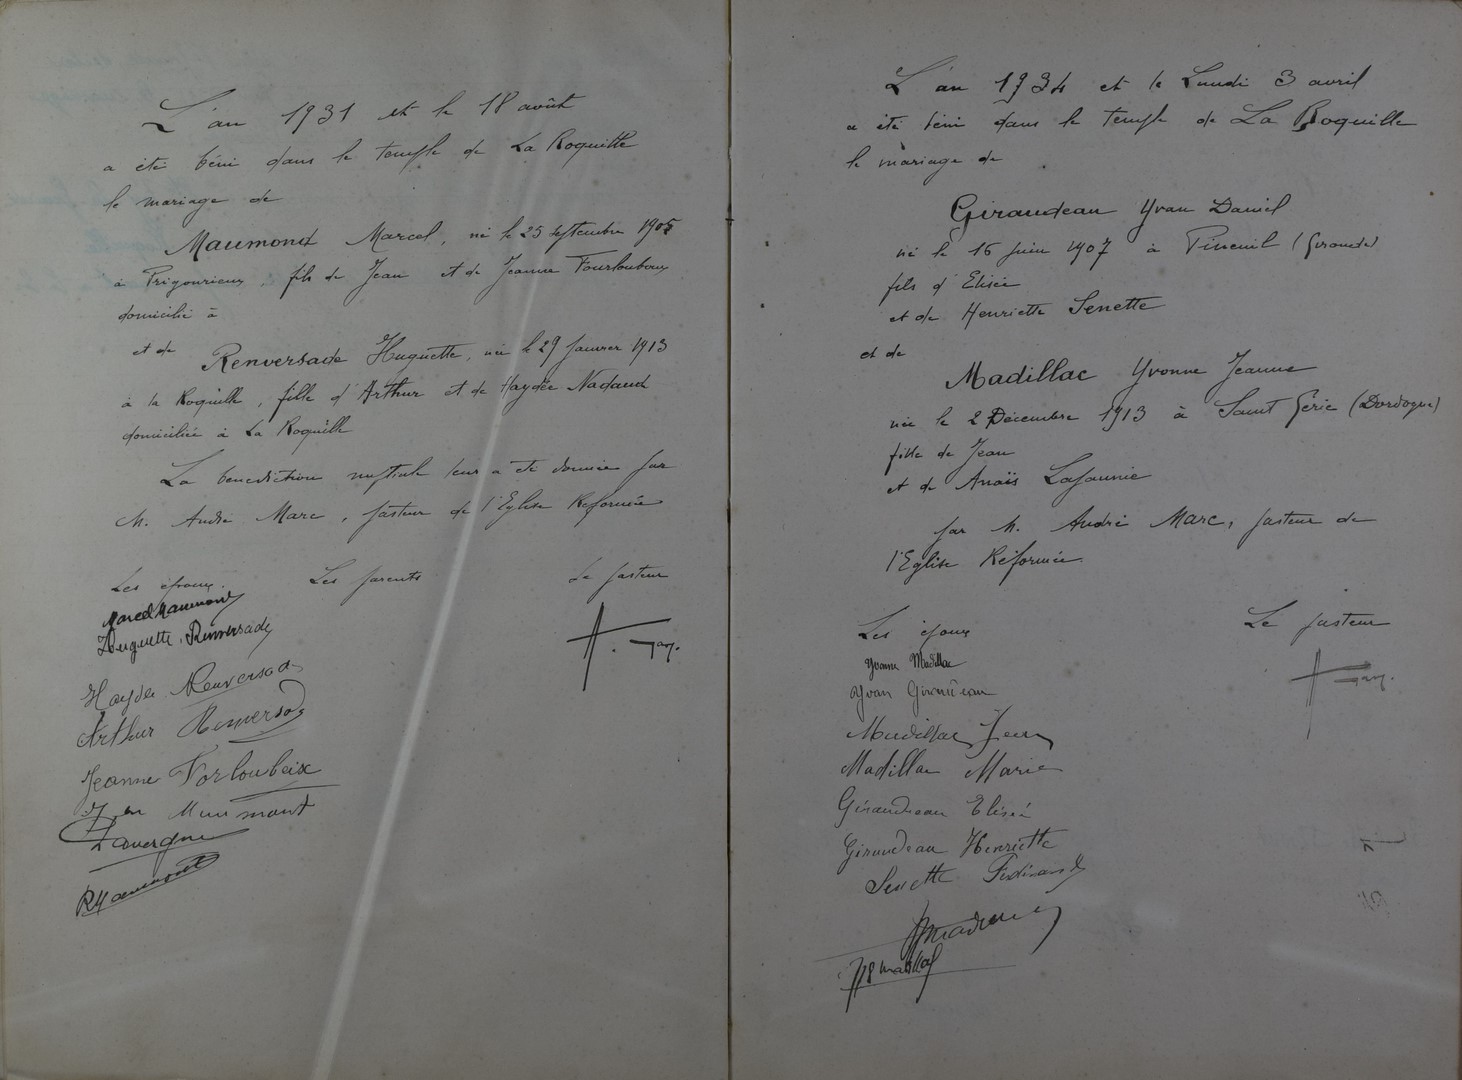 L'an 1931 et le 18 août
a été béni dans le temple de La Roquille
le mariage de
Maumont Marcel, né le 25 septembre 1905
à Prigonrieux, fils de Jean et de Jeanne Fourlouboux
domicilié à
et de Renversade Huguette, née le 29 Janvier 1913
à la Roquille, fille d'Arthur et de Haydée Nadaud
domiciliée à La Roquille
La bénédiction nuptiale leur a été donnée par
M. André Marc, pasteur de l'Eglise Réformée
Les époux. Les parents Le pasteur
Marcel Maumont
Huguette Renversade
Haydée Renversade
Arthur Renversade
Jeanne Forloubeix
Jean Maumont
Lavergne
R Maumont
L'an 1934 et le Lundi 3 avril
a été béni dans le temple de La Roquille
le mariage de
Giraudeau Yvan Daniel
né le 16 Juin 1907 à Pineuil (Gironde)
fils d'Elisée
et de Henriette Senette
et de
Madillac Yvonne Jeanne
née le 2 Décembre 1913 à Saint Géric (Dordogne)
fille de Jean
et de Anaïs Lajaunie
par M. André Marc, pasteur de
l'Eglise Réformée.
Les époux Le pasteur
Yvonne Madillac
Yvan Giraudeau
Madillac Jean
Madillac Marie
Giraudeau Elisée
Giraudeau Henriette
Senette Ferdinand
Madillac